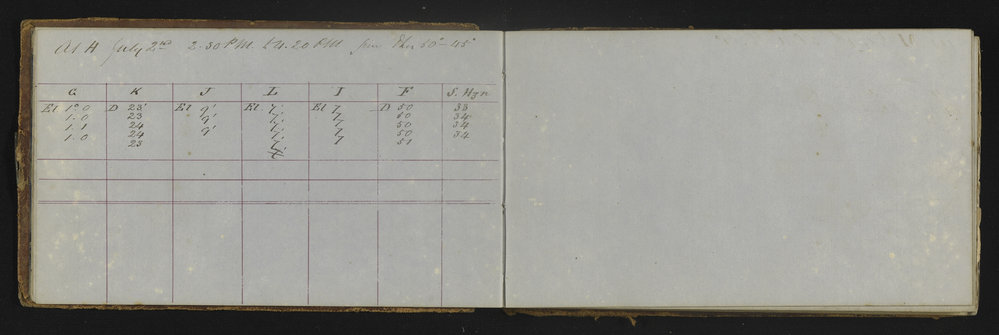 At H July 2nd 2.30 PM to 4.20 PM fine Ther 50°-45°
G K J L I F S. Hzn
El 1°0 D 23' El 9' El 7' El 7 D 50 33
1.0 23 9' 7' 7 50 34
1.1 24 9' 7' 7 50 34
1.0 24 7' 7 50 34
23 7' 51